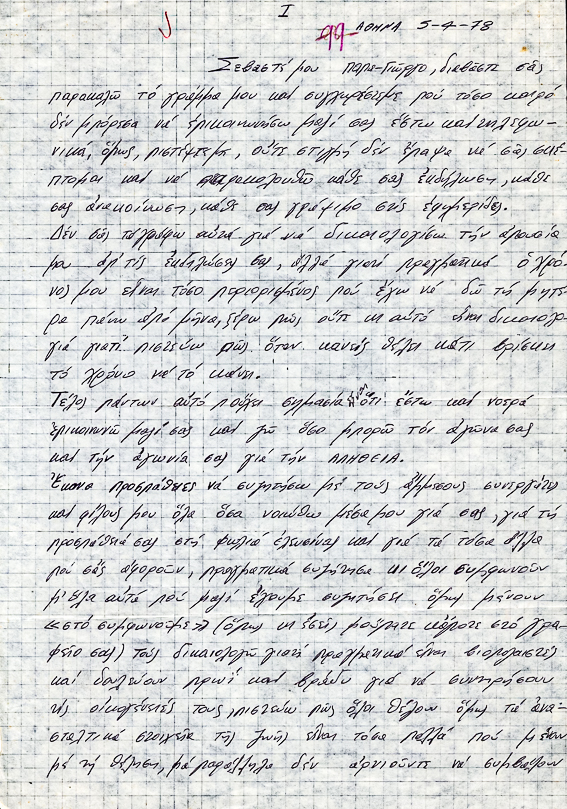 I
99 ΑΘΗΝΑ 5-4-78
Σεβαστέ μου παπα-Γιώργο, διαβάστε σᾶς
παρακαλῶ τό γράμμα μου καί συγχωρέστεμε πού τόσο καιρό
δέν μπόρεσα νά ἐπικοινωνήσω μαζί σας ἔστω καί τηλεφω-
νικά, ὅμως, πιστέψτεμε, οὔτε στιγμή δέν ἔπαψα νά σᾶς σκέ-
πτομαι καί νά παρακολουθῶ κάθε σας ἐκδήλωση, κάθε
σας ἀνακοίνωση, κάθε σας γράψιμο στίς ἐφημερίδες.
Δέν σᾶς τά γράφω αὐτά γιά νά δικαιολογήσω τήν ἀπουσία
μου ἀπ' τίς ἐκδηλώσεις σας, ἀλλά γιατί πραγματικά ὁ χρό-
νος μου εἶναι τόσο περιορισμένος πού ἔχω νά δῶ τή μητέ-
ρα πάνω ἀπό μήνα, ξέρω πώς οὔτε κι αὐτό εἶναι δικαιολο-
γία γιατί πιστεύω πώς ὅταν κανείς θέλει κάτι βρίσκει
τό χρόνο νά τό κάνει.
Τέλος πάντων αὐτό πού ἔχει σημασία εἶναι ὅτι ἔστω καί νοερά
ἐπικοινωνῶ μαζί σας καί ζῶ ὅσο μπορῶ τόν ἀγώνα σας
καί τήν ἀγωνία σας γιά τήν ΑΛΗΘΕΙΑ.
Ἔκανα προσπάθειες νά συζητήσω μέ τούς ἄμεσους συνεργάτες
καί φίλους μου ὅλα ὅσα νοιώθω μέσα μου γιά σας, γιά τή
προσπάθειά σας στή φυλακή ἐλευσίνας καί γιά τά τόσα ἄλλα
πού σᾶς ἀφοροῦν, πραγματικά συζήτησα κι ὅλοι συμφωνοῦν
μ' ὅλα αὐτά πού μαζί ἔχουμε συζητήσει ὅμως μένουν
«στό συμφωνοῦμε» (ὅπως κι ἐσεῖς μοὔπατε κάποτε στό γρα-
φεῖο σας) τούς δικαιολογῶ γιατί πραγματικά εἶναι βιοπαλαιστές
καί δουλεύουν πρωί καί βράδυ γιά νά συντηρήσουν
τίς οἰκογένειές τους, πιστεύω πώς ὅλοι θέλουν ὅμως τά ἀνα-
σταλτικά στοιχεῖα τῆς ζωῆς εἶναι τόσα πολλά πού μένουν
μέ τή θέληση, μά παράλληλα δέν ἀρνιοῦνται νά συμβάλουν